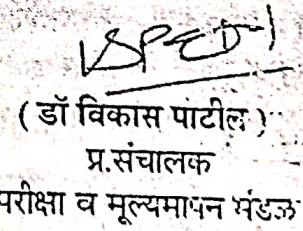 ( डॉ विकास पाटील )
प्र.संचालक
परीक्षा व मूल्यमापन मंडळ